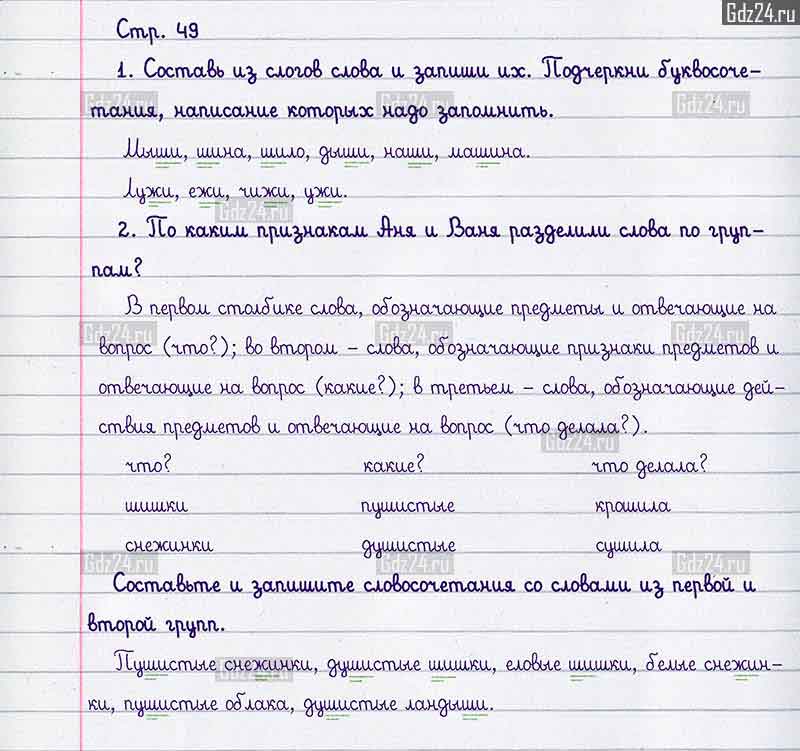 Gdz24.ru
Стр. 49
1. Составь из слогов слова и запиши их. Подчеркни буквосоче-
Gdz24.ru Gdz24.ru Gdz24.ru
тания, написание которых надо запомнить.
Мыши, шина, шило, дыши, наши, машина.
Лужи, ежи, чижи, ужи.
Gdz24.ru
2. По каким признакам Аня и Ваня разделили слова по груп-
пам?
В первом столбике слова, обозначающие предметы и отвечающие на
Gdz24.ru Gdz24.ru Gdz24.ru
вопрос (что?); во втором – слова, обозначающие признаки предметов и
отвечающие на вопрос (какие?); в третьем – слова, обозначающие дей-
ствия предметов и отвечающие на вопрос (что делала?).
Gdz24.ru
что? какие? что делала?
шишки пушистые крошила
снежинки душистые сушила
Gdz24.ru Gdz24.ru Gdz24.ru
Составьте и запишите словосочетания со словами из первой и
второй групп.
Gdz24.ru
Пушистые снежинки, душистые шишки, еловые шишки, белые снежин-
ки, пушистые облака, душистые ландыши.